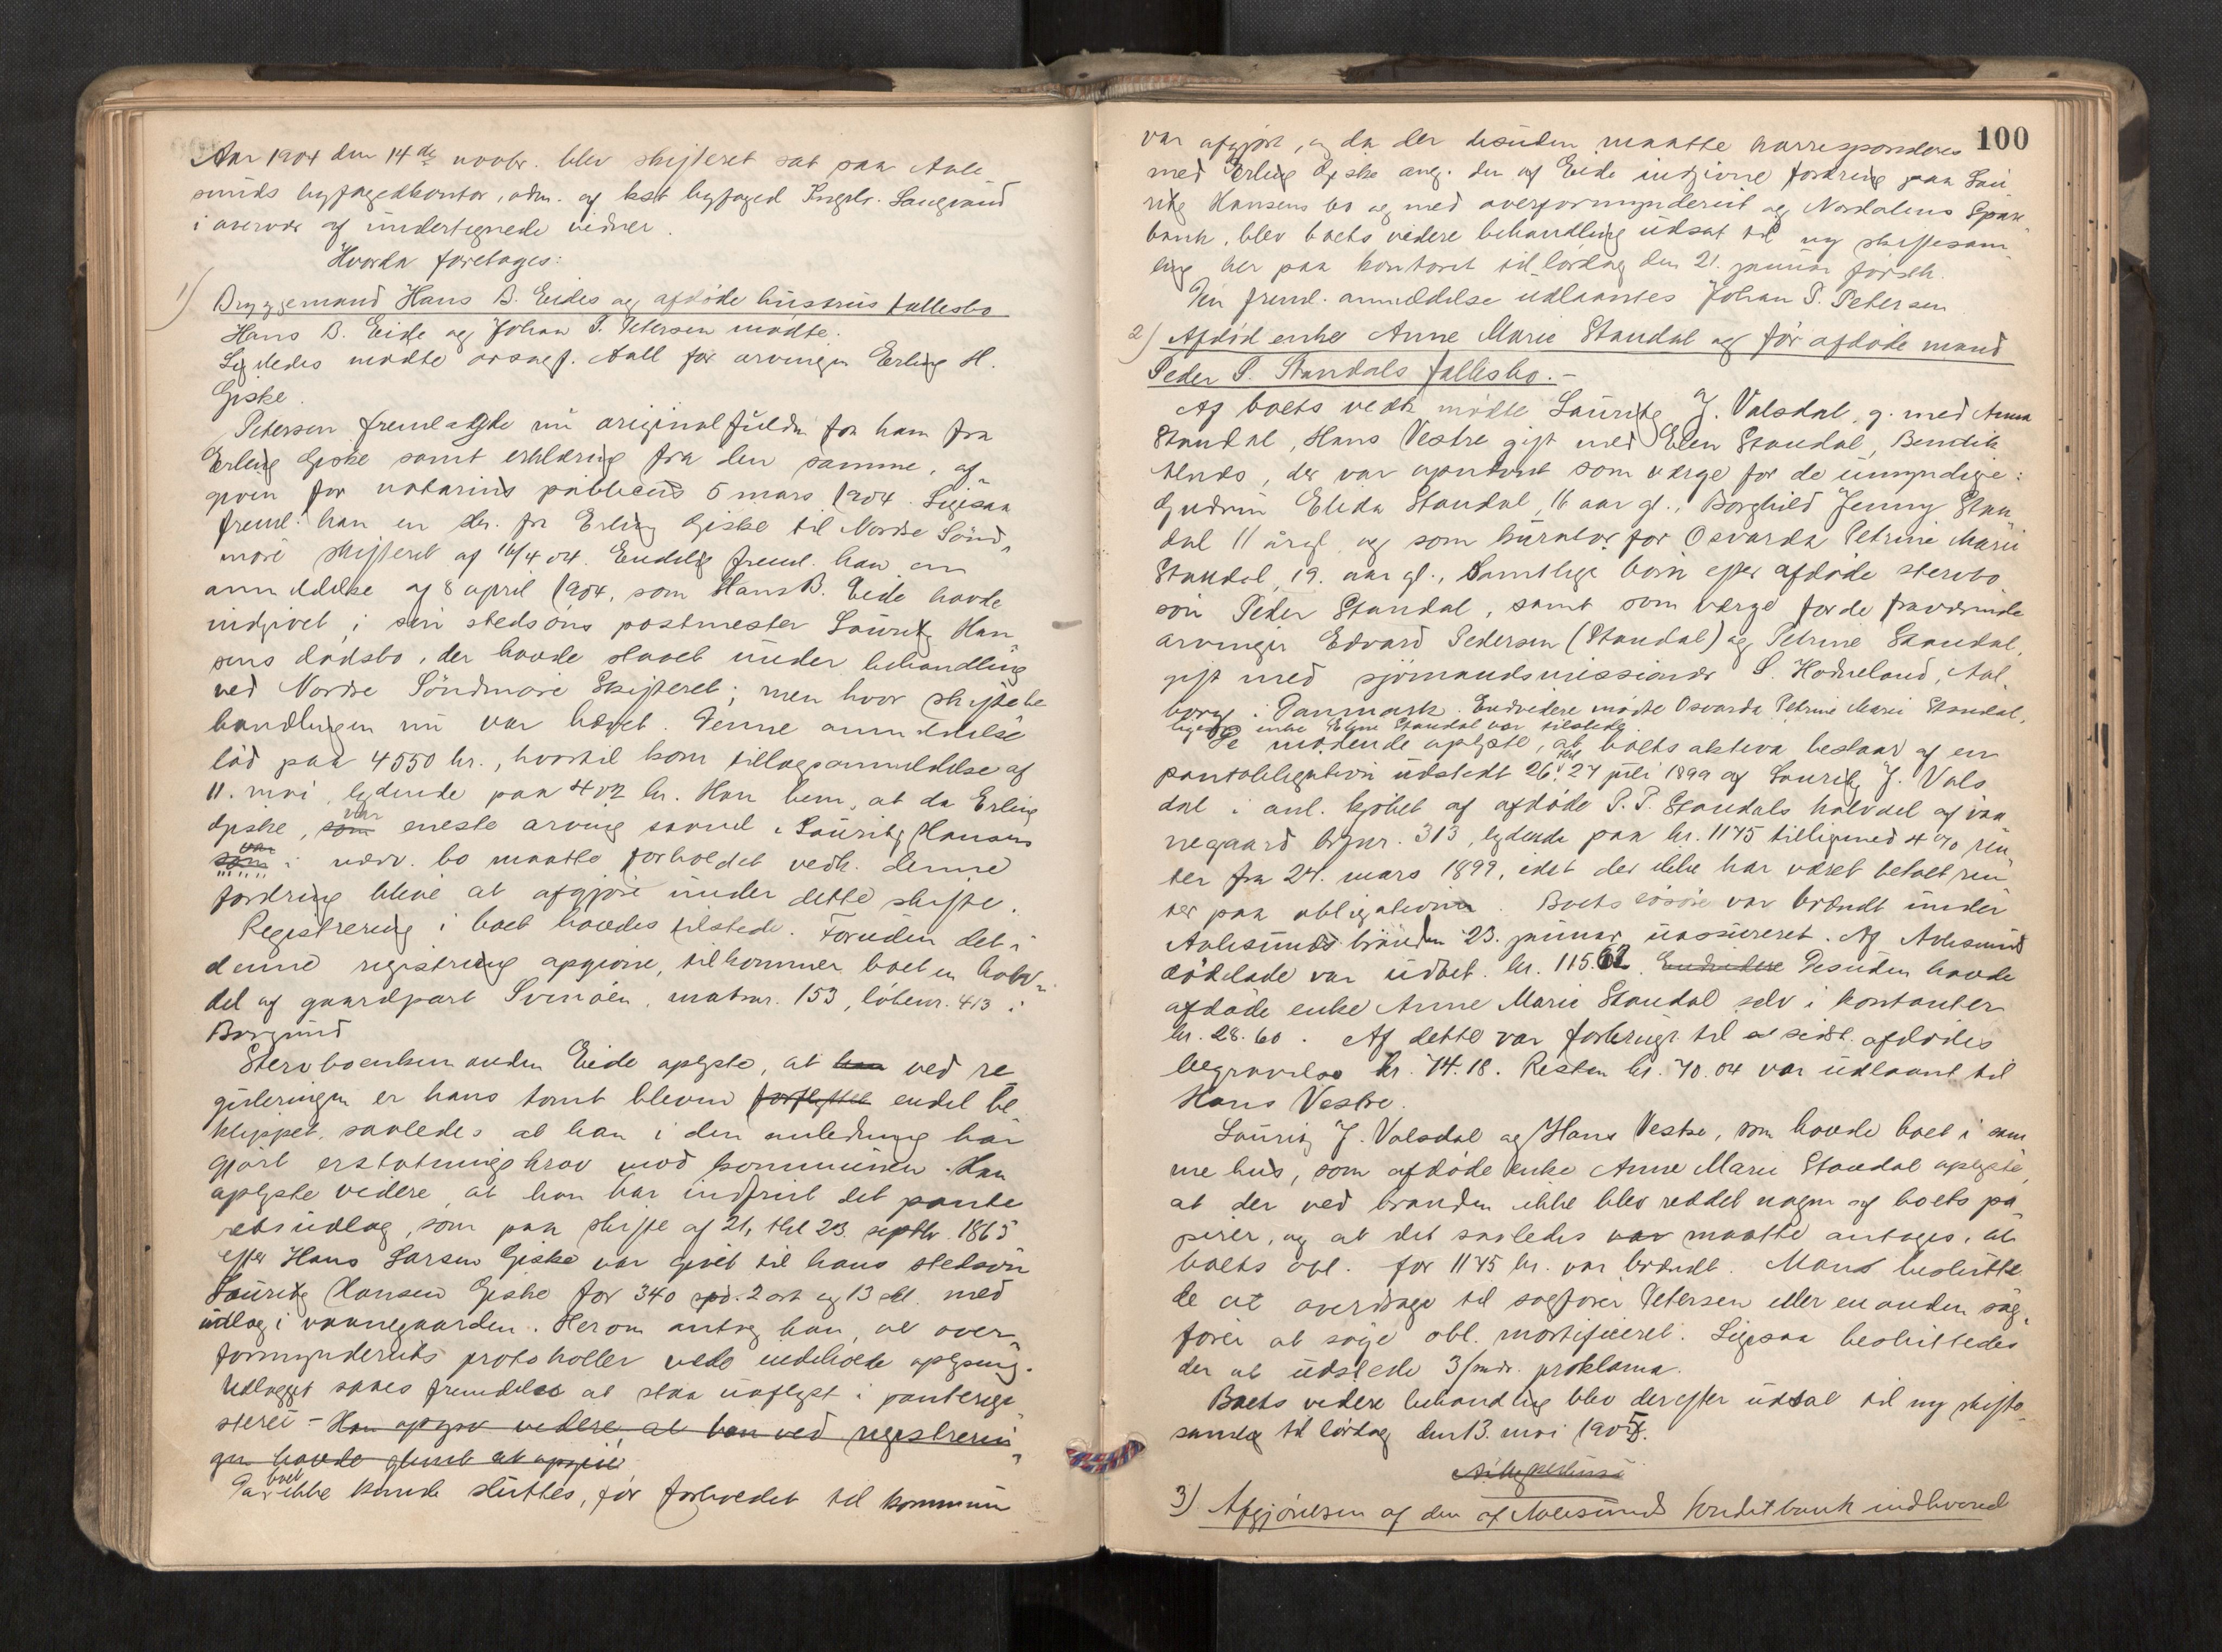 Aar 1904 den 14de novbr. blev skifteret sat paa Aale
sunds byfogedkontor, adm. af kst byfoged Ingolv. Langvand
i overvær af undertegnede vidner.
Hvorda foretoges:
1) Bryggemand Hans B. Eides og afdøde hustrus fællesbo
Hans B. Eide og Johan P. Petersen mødte.
Ligeledes mødte ovsagf. Aall for arvingen Erling H.
Giske.
Petersen fremlagte nu originalfuldm for ham fra
Erling Giske samt erklæring fra den samme, af
given for notarius publicus 5 mars 1904. Ligesaa
freml. han en skr. fra Erling Giske til Nordre Sönd,
möre skifteret af 16/4 04. Endelig freml. han en
anmeldelse af 8 april 1904, som Hans B. Eide havde
indgivet i sin stedsöns postmester Lauritz Han
sens dödsbo, der havde staaet under behandling
ved Nordre Söndmöre Skifteret; men hvor skiftebe
handlingen nu var hævet. Denne anmeldelse
löd paa 4550 kr., hvortil kom tillægsanmeldelse af
11. mai, lydende paa 402 kr. Han bem. at da Erling
Giske, som var eneste arving saavel i Lauritz Hansens
som i nærv. bo maatte forholdet vedk. denne
fordring blive at afgjöre under dette skifte.
Registrering i boet havdes tilstede. Foruden det i
denne registrering opgivne, tilkommer boet en halv
del af gaardpart Svinöen, matnr. 153, löbenr. 413 i
Borgund
Stervboenkemanden Eide oplyste, at han ved re
guleringen er hans tomt bleven forflyttet endel be
klippet, saaledes at han i den anledning har
gjort erstatningskrav mod kommunen. Han
oplyste videre, at han har indfriet det pante
retsudlæg, som paa skifte af 21, til 23. septbr. 1865
efter Hans Larsen Giske var givet til hans stedsön
Lauritz Hansen Giske for 340 spd. 2 ort og 13 skl. med
udlæg i vaanegaarden. Herom antog han, at over,
formynderiets protokoller vilde indeholde oplysning.
Udlægget saaes fremdeles at staa uaflyst i panteregi
steret - Han oplyste videre, at han ved registrerin
gen havde glemt at opgive
Da boet ikke kunde sluttes, för forholdet til kommunen
100
var afgjort, og da der desuden maatte korresponderes
med Erling Giske ang. den af Eide indgivne fordring paa Lau
ritz Hansens bo og med overformynderiet og Nordalens Spare
bank, blev boets videre behandling udsat til ny skiftesam
ling her paa kontoret til lördag den 21. januar förstk.
Den freml. anmeldelse udlaantes Johan P. Petersen
2) Afdöd enke Anne Marie Standal og för afdöde mand
Peder P. Standals fællesbo. -
Af boets vedk. mödte Lauritz J. Valsdal, g. med Anna
Standal, Hans Vestre gift med Elen Standal, Bendik
Alnæs, der var opnævnt som værge for de umyndige:
Gudrun Elida Standal, 16 aar gl., Borghild Jenny Stan
dal 11 aar gl. og som kurator for Osvarda Petrine Marie
Standal, 19. aar gl., Samtlige börn efter afdöde stervbo
sön Peder Standal, samt som værge for de fraværende
arvinger Edvard Pedersen (Standal) og Petrine Standal,
gift med sjömandsmissionær S. Hodneland, Aal
borg i Danmark. Endvidere mödte Osvarda Petrine Marie Standal,
ligesom enke Eline Standal var tilstede
De mödende oplyste, at boets aktiva bestaar af en
pantobligation udstedt 26. til 27 juli 1899 af Lauritz J. Vals
dal i anl. kjöbet af afdöde P. P. Standals halvdel af vaa
negaard bygnr. 313, lydende paa kr. 1145 tilligemed 4 % ren
ter fra 24. mars 1899, idet der ikke har været betalt ren
ter paa obligationen. Boets lösöre var brændt under
Aalesunds branden 23. januar uassureret. Af Aalesunds
dödelade var udbet. kr. 115.62. Endvidere Desuden havde
afdöde enke Anne Marie Standal selv i kontanter
kr. 28.60. Af dette var forbrugt til sidst. afdödes
begravelse kr. 74.18. Resten kr. 70.04 var udlaant til
Hans Vestre.
Lauritz J. Valsdal og Hans Vestre, som havde boet i sam
me hus, som afdöde enke Anne Marie Standal oplyste,
at der ved branden ikke blev reddet nogen af boets pa
pirer, og at det saaledes var maatte antages, at
boets obl. for 1145 kr. var brændt. Man beslutte
de at overdrage til sagförer Petersen eller en anden sag,
förer at söge obl. mortificeret. Ligesaa besluttedes
der at udstede 3/mdr. proklama.
Boets videre behandling blev derefter udsat til ny skifte
samling til lördag den 13. mai 1905.
3) Afgjörelsen af den af Aalesunds Kreditbank indhæved